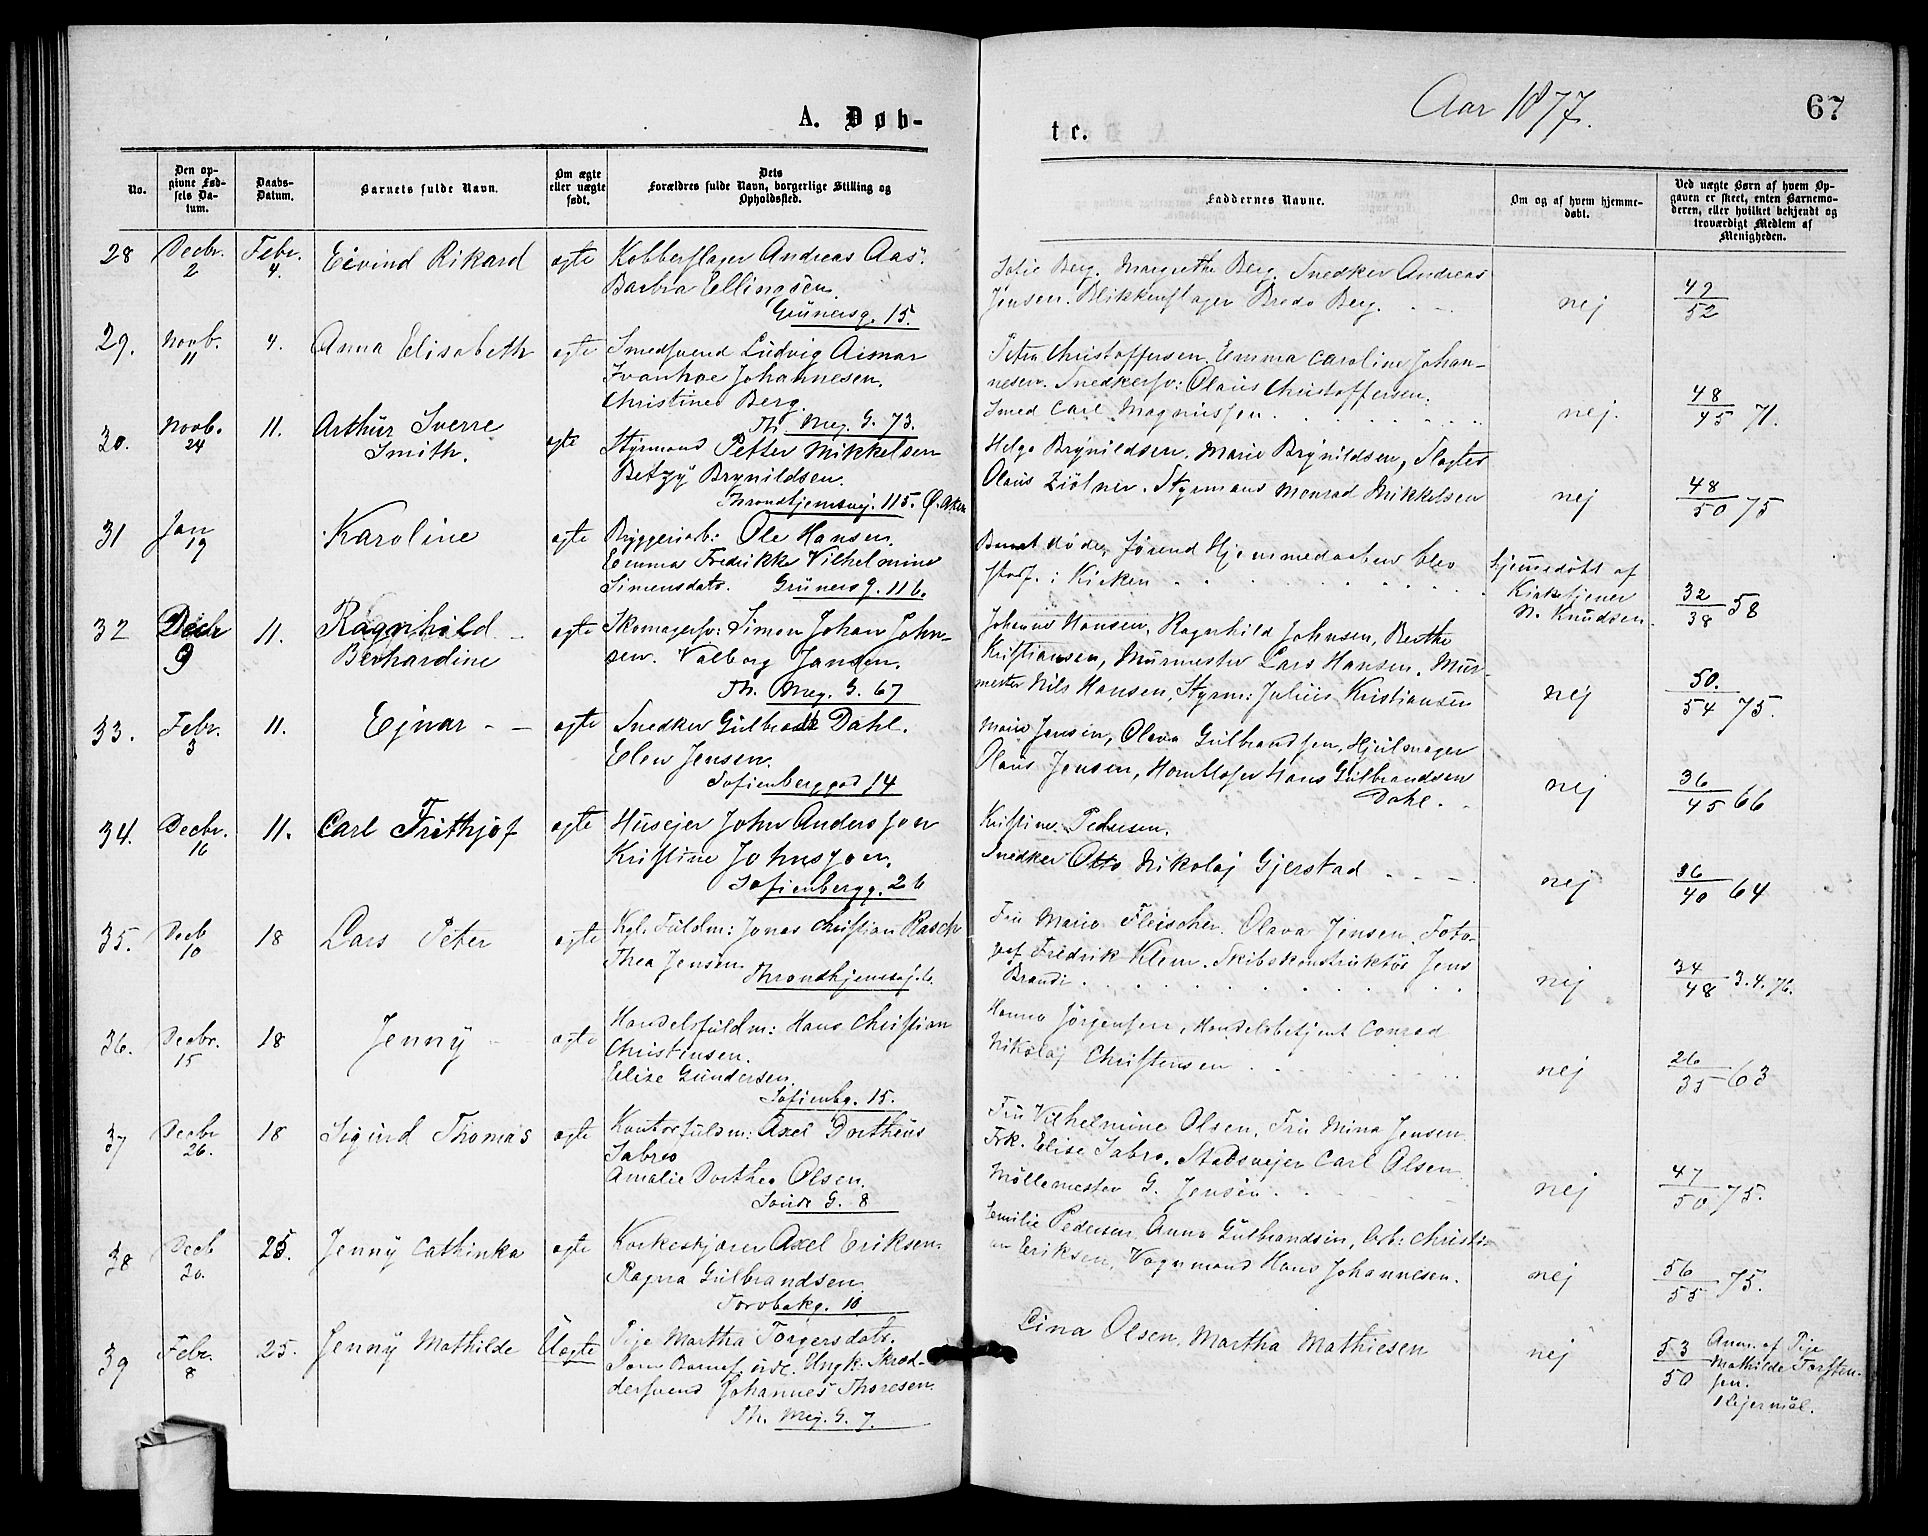 Aar 1877.
67
A. Døb-
te.
No.
Den op-
givne Fød-
sels Da-
tum.
Daabs-
Datum.
Barnets fulde Navn.
Om ægte
eller uægte
født.
Dets
Forældres fulde Navn, borgerlige Stilling og
Opholdssted.
Faddernes Navne.
Om og af hvem hjemme-
døbt.
Ved uægte Børn af hvem Op-
gaven er skeet, enten Barnemo-
deren, eller hvilket bekjendt og
troværdigt Medlem af
Menigheden.
28 Decbr. 2 Febr. 4. Eivind Rikard ægte Kobberslager Andreas Aas.
Barbra Ellingsen.
Grünersg. 15.
Sofie Berg. Margrethe Berg. Snedker Andreas
Jensen. Blikkenslager Bredo Berg.
nej
49/52
29. Novb. 11 4. Anna Elisabeth ægte Smedsvend Ludvig Aismar
Ivanhoe Johannesen.
Christine Berg.
Th. Mey. G. 73.
Petra Christoffersen. Emma Caroline Johan-
nesen. Snedkersv: Olaus Christoffersen.
Smed Carl Magnussen.
nej.
48/45 71.
30. Novb. 24 11. Arthur Sverre
Smith.
ægte Styrmand Petter Mikkelsen
Betzy Brynildsen.
Throndhjemsvej. 115. Ø. Aker
Helga Brynildsen. Marie Brynildsen, Slagter
Olaus Ziølner. Styrmand Monrad Mikkelsen
nej
48/50 75
31 Jan 19 Karoline ægte Bryggeriarb: Ole Hansen.
Emma Fredrikke Vilhelmine
Simensdatr. Grünersg. 116.
Barnet døde, førend Hjemmedaaben blev
stadf. i Kirken
Hjemmedøbt af
Kirketjener
N. Knudsen.
32/38 58
32 Decbr 9 11. Ragnhild
Bernhardine
ægte Skomagersv: Simon Johan John-
sen. Valborg Jansen.
Th. Mey. G. 67
Johanne Hansen, Ragnhild Johnsen, Berthe
Kristiansen, Murmester Lars Hansen. Mur-
mester Nils Hansen, Styrm: Julius Kristiansen
nej
50./54 75.
33. Febr. 3 11. Ejnar ægte Snedker Gulbrand Dahl.
Elen Jensen.
Sofienberggad 14
Marie Jensen, Olava Gulbrandsen, Hjulmager
Olaus Jensen, Hans Gulbrandsen
Dahl.
nej
36/45 66
34. Decbr. 16 11. Carl Frithjof ægte Husejer John Andersson
Kristine Johnsson.
Sofienbergg. 26
Kristine Pedersen.
Snedker Otto Nikolaj Gjerstad
nej
36/40 64
35. Decb 10 18 Lars Peter ægte Kgl. Fuldm: Jonas Christian Rasch
Thea Jensen
Throndhjemsvej. 6.
Fru Marie Fleischer. Olava Jensen. Foto-
graf Fredrik Klem. Skibskonstruktør Jens
Brandt.
nej
34/48 3.4.76.
36. Decbr. 15 18 Jenny ægte Handelsfuldm: Hans Christian
Christensen.
Elise Gundersen.
Sofienbg. 15.
Hanna Jörgensen, Handelsbetjent Conrad
Nikolaj Christensen
nej
26/35 63
37 Decbr 26. 18 Sigurd Thomas ægte Kontorfuldm: Axel Dortheus
Sabro
Amalie Dorthea Olsen.
G. 8
Fru Vilhelmine Olsen, Fru Mina Jensen.
Frk. Elise Sabro. Stadsvejer Carl Olsen
Möllemester G. Jensen.
nej
47/50 75.
38 Decb 30. 25. Jenny Cathinka ægte Korkeskjærer Axel Eriksen.
Ragna Gulbrandsen.
Torvbakg. 10
Emilie Pedersen, Anna Gulbrandsen, Arb: Christi-
an Eriksen, Vognmand Hans Johannesen.
nej
56/55 75.
39 Febr. 8 25. Jenny Mathilde Uægte Pige Martha Torgersdatr.
Som Barnef. udl. Ungk. Skræd-
dersvend Johannes Thoresen
Th. Mey. G. 7.
Lina Olsen, Martha Mathiesen
nej
53/50 Anm. af Pige
Mathilde Torsten-
sen.